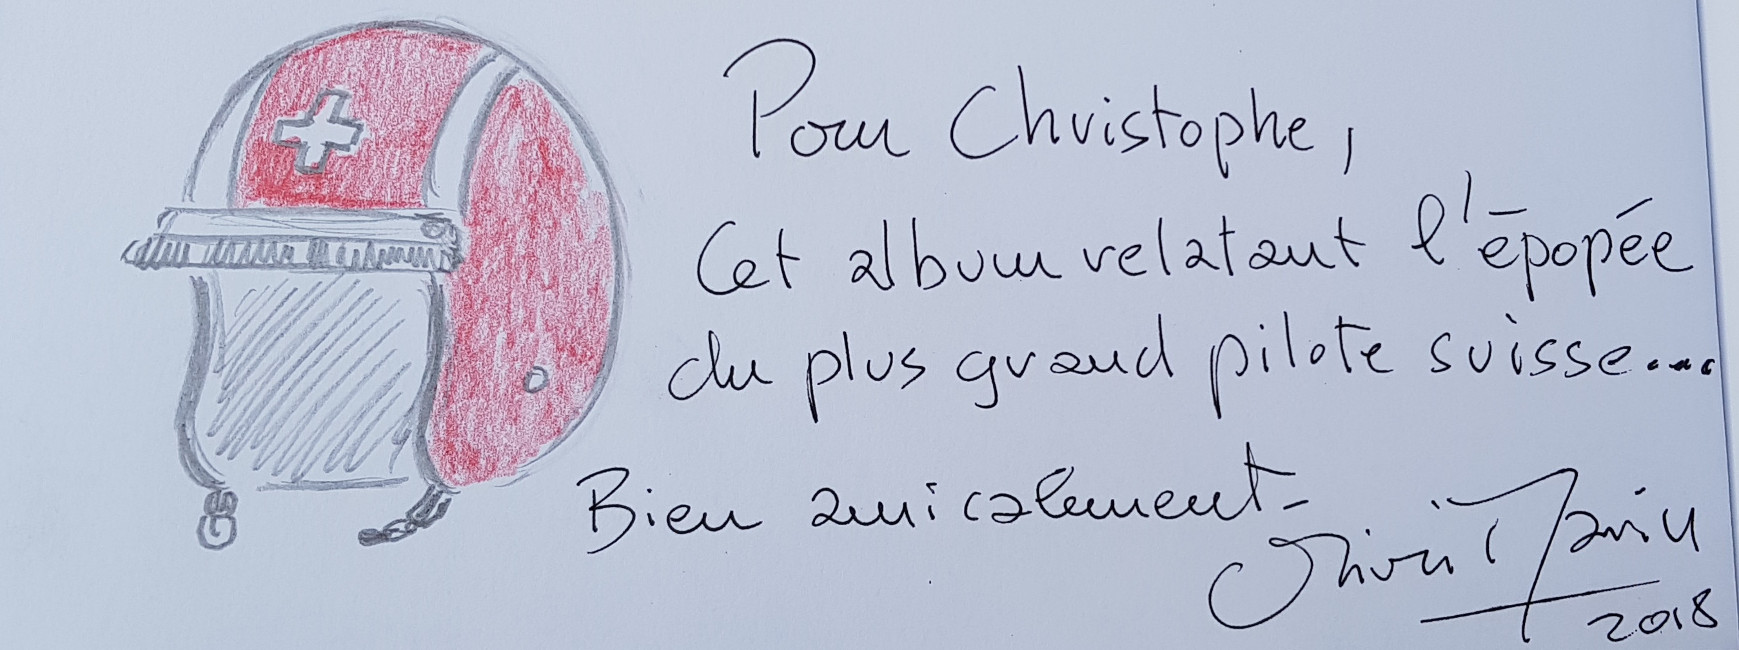 Pour Christophe,
Cet album relatant l'épopée
du plus grand pilote suisse...
Bien amicalement-
Olivier Marin
2018